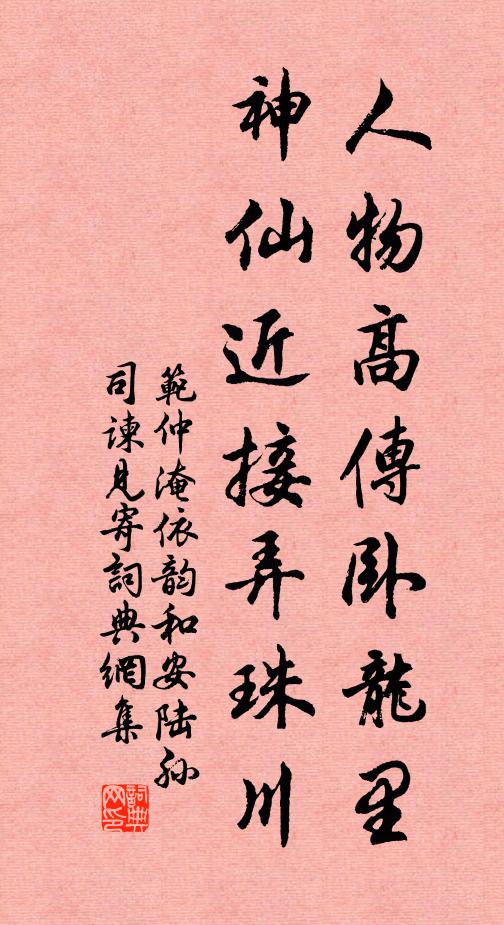 人物高傳臥龍里
神仙近接弄珠川
範仲淹依韵和安陸孫
司諫見寄詞典網集
詞典網印